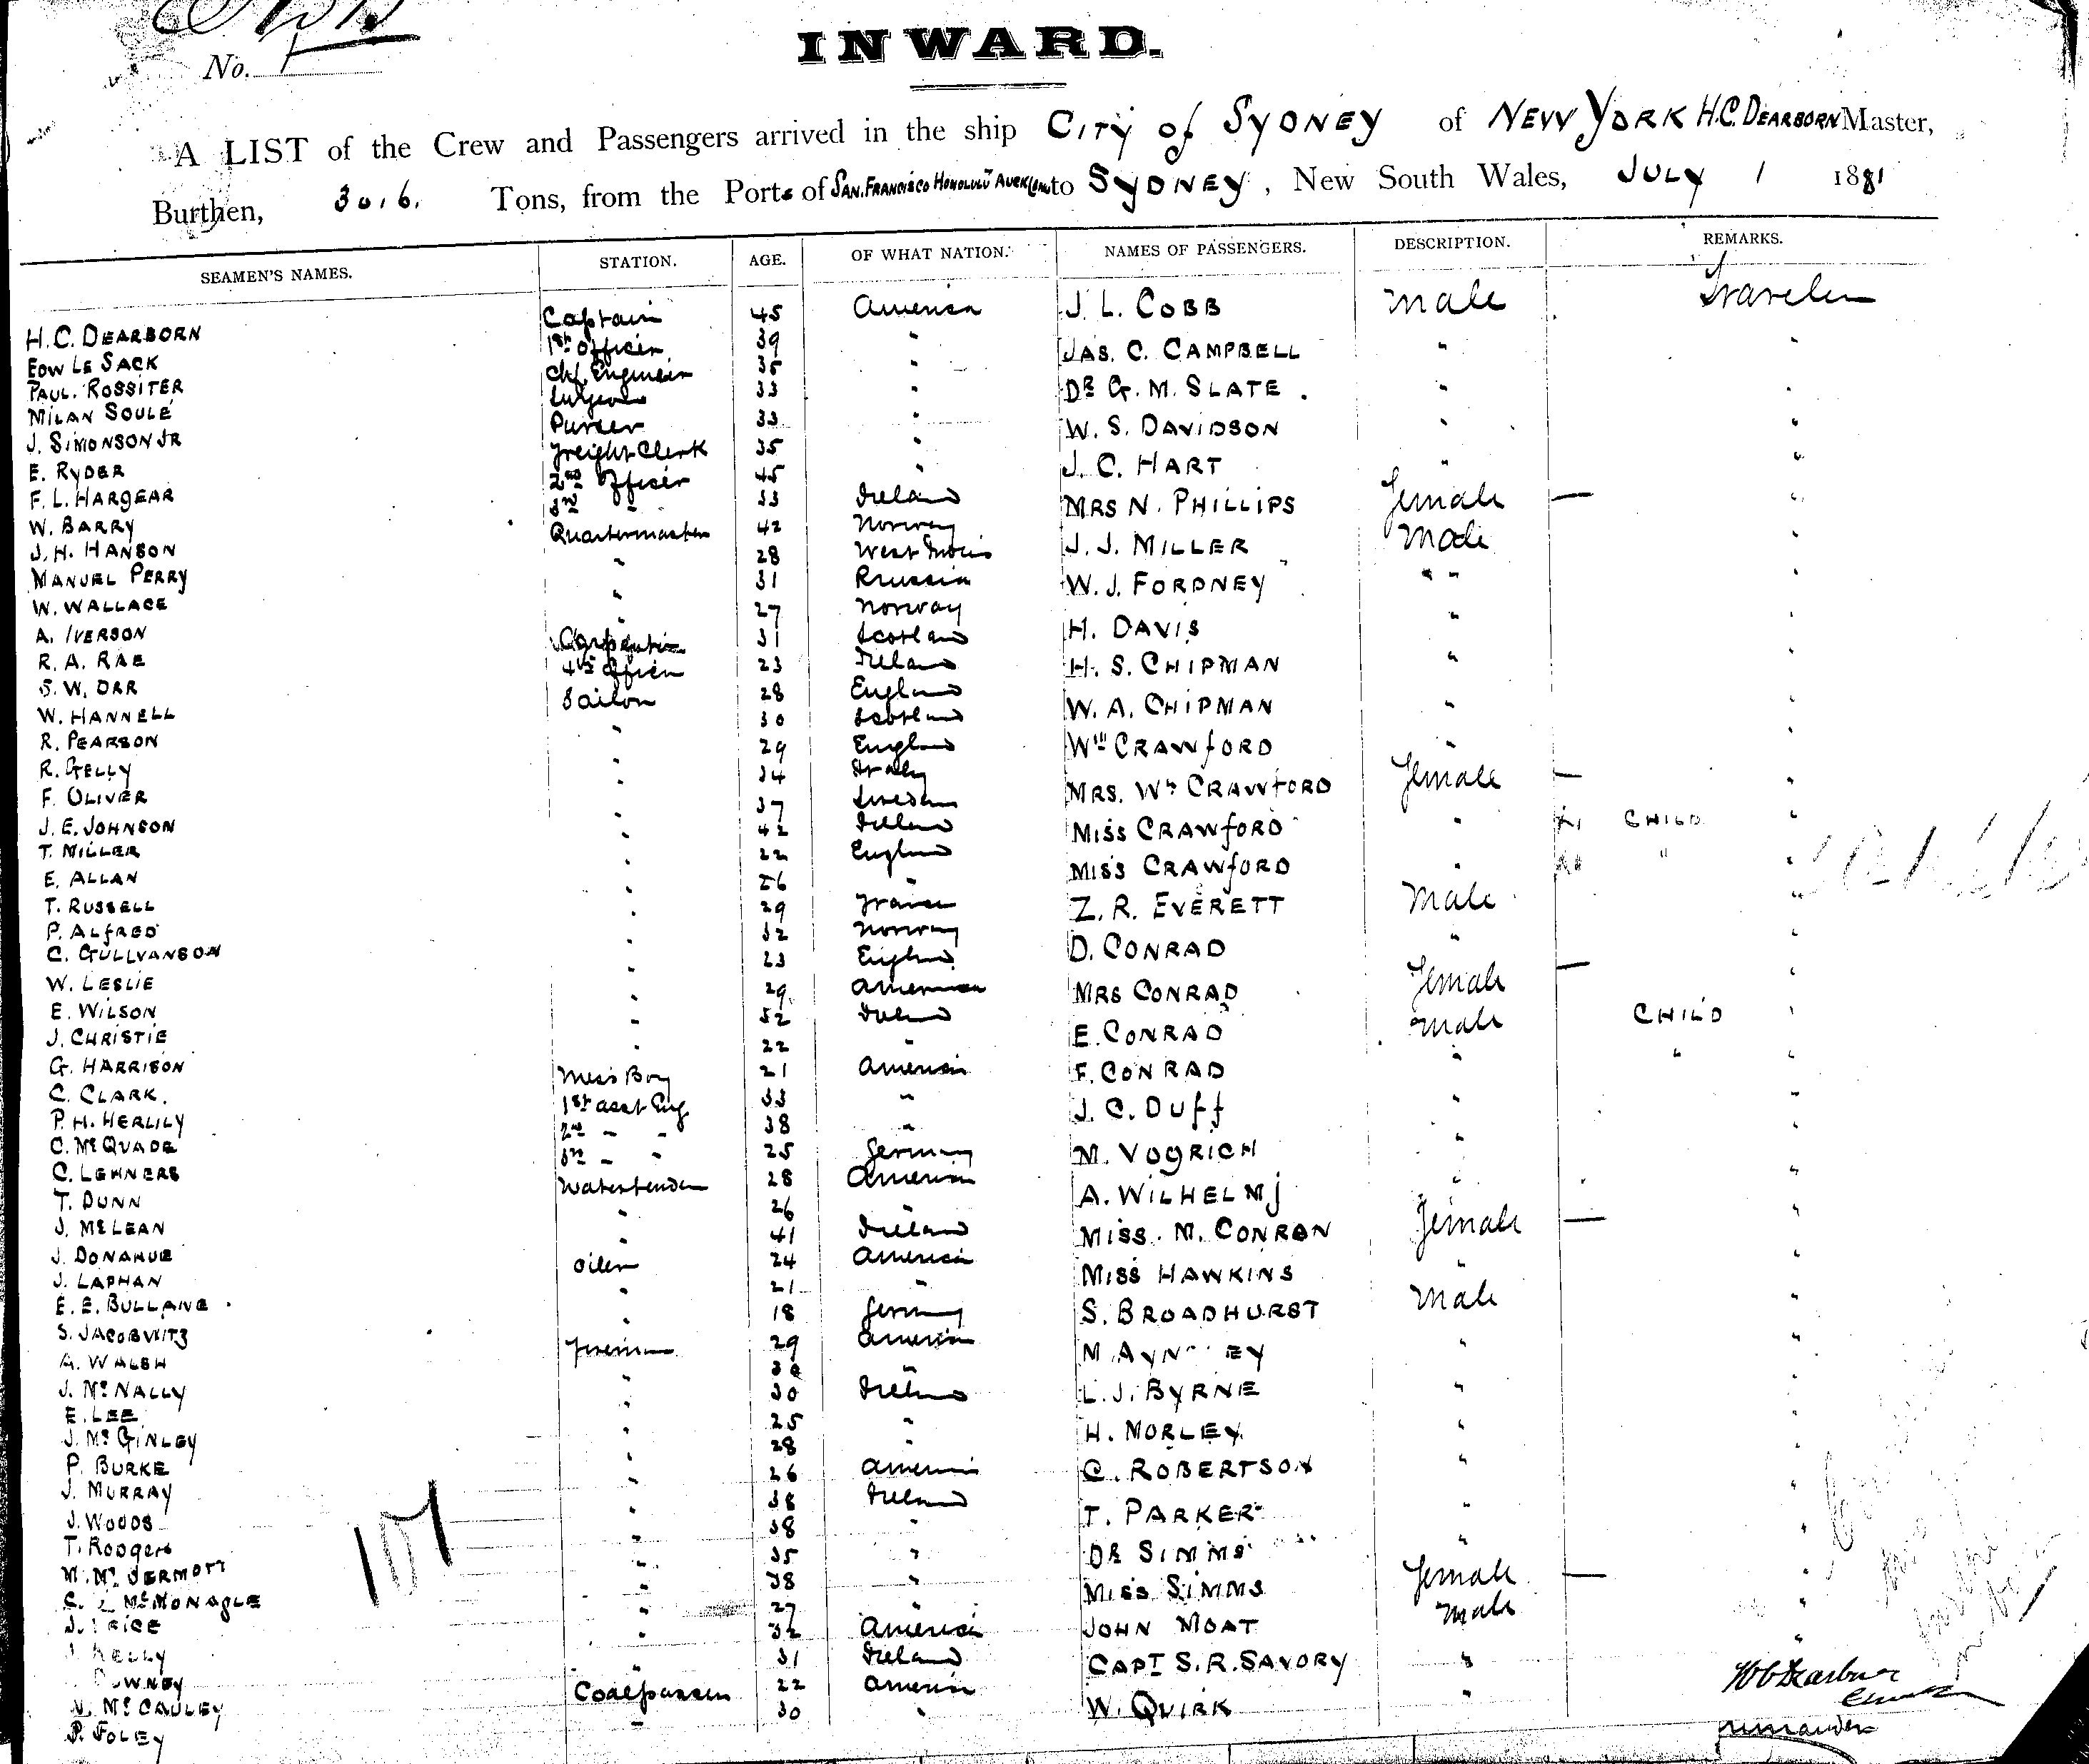 No. 1
INWARD.
A LIST of the Crew and Passengers arrived in the ship CITY of SYDNEY of NEW YORK H.C. DEARBORN Master,
Burthen, 3016. Tons, from the Ports of SAN. FRANCISCO HONOLULU AUCKLAND to SYDNEY, New South Wales, JULY 1 1881
SEAMEN'S NAMES. STATION. AGE. OF WHAT NATION. NAMES OF PASSENGERS. DESCRIPTION. REMARKS.
H.C. DEARBORN Captain 45 America J. L. COBB male Traveler
EDW LE SACK 1st Officer 39 " JAS. C. CAMPBELL " "
PAUL. ROSSITER Chf. Engineer 35 " DR G. M. SLATE. " "
MILAN SOULÉ Surgeon 33 " W. S. DAVIDSON " "
J. SIMONSON JR Purser 33 " J. C. HART " "
E. RYDER Freight Clerk 35 " MRS N. PHILLIPS Female — "
F. L. HARGEAR 2nd Officer 45 " J. J. MILLER male "
W. BARRY 3rd " 33 Ireland W. J. FORDNEY " " "
J. H. HANSON Quartermaster 42 Norway H. DAVIS " "
MANUEL PERRY " 28 West Indies H. S. CHIPMAN " "
W. WALLACE " 31 Russia W. A. CHIPMAN " "
A. IVERSON " 27 Norway Wm CRAWFORD " "
R. A. RAE Carpenter 31 Scotland MRS. Wm CRAWFORD Female — "
S. W. ORR 4th Officer 23 Ireland MISS CRAWFORD " CHILD "
W. HANNELL Sailor 28 England MISS CRAWFORD " " "
R. PEARSON " 30 Scotland Z. R. EVERETT Male "
R. GELLY " 29 England D. CONRAD " "
F. OLIVER " 34 Italy MRS CONRAD Female — "
J. E. JOHNSON " 37 Sweden E. CONRAD male CHILD "
T. MILLER " 42 Ireland F. CONRAD " " "
E. ALLAN " 22 England J. C. DUFF " "
T. RUSSELL " 26 " M. VOGRICH " "
P. ALFRED " 29 France A. WILHELMJ " "
C. GULLVANSON " 32 Norway MISS. M. CONRAN Female — "
W. LESLIE " 23 England MISS HAWKINS " "
E. WILSON " 29 American S. BROADHURST Male "
J. CHRISTIE " 52 Ireland M " "
G. HARRISON " 22 " L. J. BYRNE " "
C. CLARK. Mess Boy 21 America H. MORLEY " "
P. H. HERLILY 1st asst Eng 33 " C. ROBERTSON " "
C. McQUADE 2nd " " 38 " T. PARKER " "
C. LEHNERS 3rd " " 25 Germany DR SIMMS " "
T. DUNN Watertender 28 America MISS SIMMS Female — "
J. McLEAN " 26 " JOHN MOAT Male "
J. DONAHUE " 41 Ireland CAPT S. R. SAVORY "
J. LAPHAN Oiler 24 America W. QUIRK "
E. E. BULLANE " 21 "
S. JACOBWITZ " 18 Germany
A. WALSH Fireman 29 America
J. McNALLY " "
E. LEE " 30 Ireland
J. McGINLEY " 25 "
P. BURKE " 28 "
J. MURRAY " 26 America
J. WOODS " 38 Ireland
T. Rodgers " 38 "
M. McDERMOTT " 35 "
McMONAGLE " 38 "
J. PRICE " 27 "
J KELLY " 32 America
" 31 Ireland
N. McCAULEY Coalpasser 22 America
P. FOLEY " 30 "
107
HC Dearborn
Commander